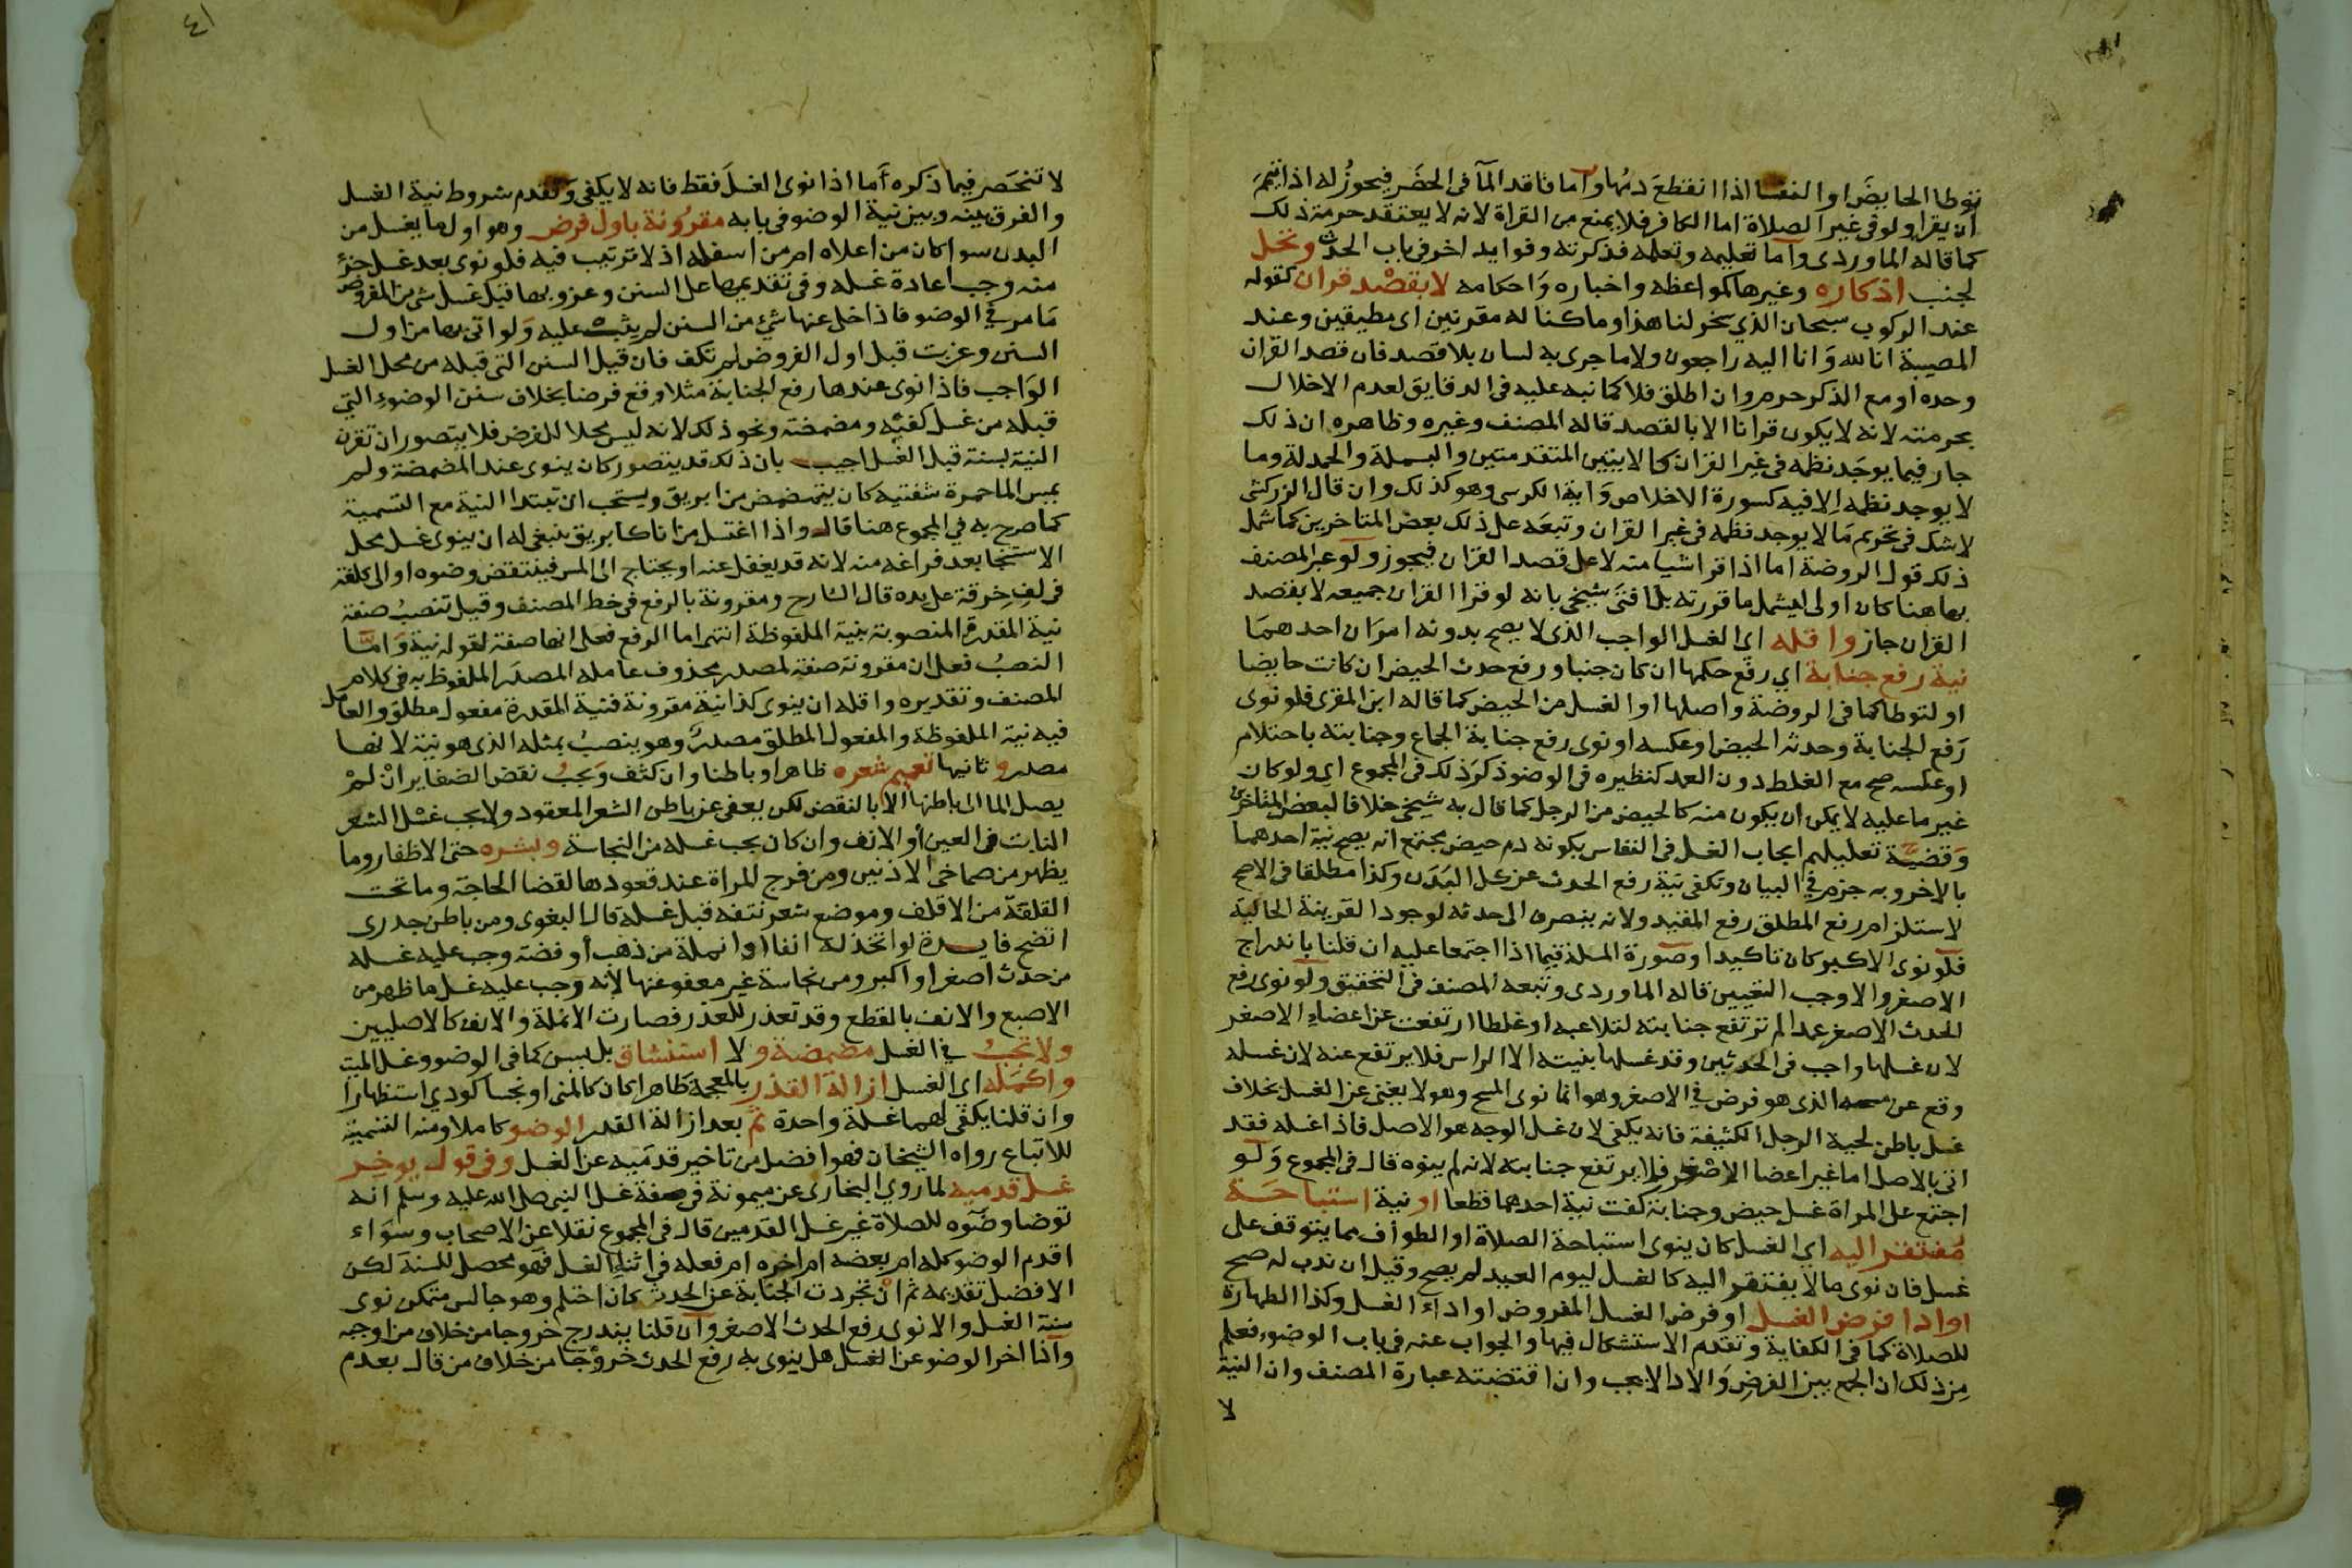 توطا الحايض او النفسا اذا انقطع دمها واما فاقد المآ فى الحضر فيجوز له اذا تيمم
ان يقرا ولو فى غير الصلاة اما الكافر فلا يمنع من القراة لانه لا يعتقد حرمة ذلك
كما قاله الماوردى واما تعليمه وتعلمه فذكرته وفوايد اخر فى باب الحدث وتحل
لجنب اذكاره وغيرها كمواعظه واخباره واحكامه لا بقصد قران كقوله
عند الركوب سبحان الذي سخر لنا هذا وما كنا له مقرنين اى مطيقين وعند
المصيبة انا لله وانا اليه راجعون ولا ما جرى به لسان بلا قصد فان قصد القران
وحده او مع الذكر حرم وان اطلق فلا كما نبه عليه فى الدقايق لعدم الاخلال
بحرمته لانه لا يكون قرانا الا بالقصد قاله المصنف وغيره وظاهره ان ذلك
جار فيما يوجد نظمه فى غير القران كالايتين المتقدمتين والبسملة والحمدلة وما
لا يوجد نظمه الا فيه كسورة الاخلاص واية الكرسى وهو كذلك وان قال الزركشى
لا شك فى تحريم ما لا يوجد نظمه فى غير القران وتبعه على ذلك بعض المتاخرين كما شمل
ذلك قول الروضة اما اذا قرا شيا منه لا على قصد القران فيجوز ولو عبر المصنف
بها هنا كان اولى ليشمل ما قررته بل افتى شيخى بانه لو قرا القران جميعه لا بقصد
القران جاز واقله اى الغسل الواجب الذى لا يصح بدونه امران احدهما
نية رفع جنابة اي رفع حكمها ان كان جنبا ورفع حدث الحيض ان كانت حايضا
او لتوطا كما فى الروضة واصلها او الغسل من الحيض كما قاله ابن المقرى فلو نوى
رفع الجنابة وحدثه الحيض او عكسه او نوى رفع جنابة الجماع وجنابته باحتلام
او عكسه صح مع الغلط دون العمد كنظيره فى الوضو ذكر ذلك فى المجموع اى ولو كان
غير ما عليه لا يمكن ان يكون منه كالحيض من الرجل كما قال به شيخى خلافا لبعض المتاخرين
وقضية تعليلهم ايجاب الغسل فى النفاس بكونه دم حيض مجتمع انه يصح نية احدهما
بالاخر وبه جزم في البيان وتكفى نية رفع الحدث عن كل البدن وكذا مطلقا فى الاصح
لاستلزام رفع المطلق رفع المقيد ولانه ينصرف الى حدثه لوجود القرينة الحالية
فلو نوى الاكبر كان تاكيدا وصورة المسلة فيما اذا اجتمعا عليه ان قلنا باندراج
الاصغر والا وجب التعيين قاله الماوردى وتبعه المصنف فى التحقيق ولو نوى رفع
الحدث الاصغر عمدا لم ترتفع جنابته لتلاعبه او غلطا ارتفعت عن اعضاء الاصغر
لان غسلها واجب فى الحدثين وقد غسلها بنيته الا الراس فلا يرتفع عنه لان غسله
وقع عن مسحه الذى هو فرض في الاصغر وهو انما نوى المسح وهو لا يغنى عن الغسل بخلاف
غسل باطن لحية الرجل الكثيفة فانه يكفى لان غسل الوجه هو الاصل فاذا غسله فقد
اتى بالاصل اما غير اعضا الاصغر فلا يرتفع جنابته لانه لم ينوه قال فى المجموع ولو
اجتمع على المراة غسل حيض وجنابة كفت نية احدهما قطعا او نية استباحة
مفتقر اليه اي الغسل كان ينوى استباحة الصلاة او الطواف مما يتوقف على
غسل فان نوى ما لا يفتقر اليه كالغسل ليوم العيد لم يصح وقيل ان ندب له صح
او ادا فرض الغسل او فرض الغسل المفروض او اداء الغسل وكذا الطهارة
للصلاة كما فى الكفاية وتقدم الاستشكال فيها والجواب عنه فى باب الوضوء فعلم
من ذلك ان الجمع بين الفرض والادا لا يجب وان اقتضته عبارة المصنف وان النية
لا
٤١
لا تنحصر فيما ذكره أما اذا نوى الغسل فقط فانه لا يكفى وتقدم شروط نية الغسل
والفرق بينه وبين نية الوضو فى بابه مقرونة باول فرض وهو اول ما يغسل من
البدن سوا كان من اعلاه ام من اسفله اذ لا ترتيب فيه فلو نوى بعد غسل جزء
منه وجب اعادة غسله وفى تقديمها على السنن وعزوبها قبل غسل شى من المفروض
ما مر في الوضو فاذا خلى عنها شئ من السنن لم يثب عليه ولو اتى بها من اول
السنن وعزبت قبل اول الفروض لم تكف فان قيل السنن التى قبله من محل الغسل
الواجب فاذا نوى عندها رفع الجنابة مثلا وقع فرضا بخلاف سنن الوضوء التي
قبله من غسل كفيه ومضمضة ونحو ذلك لانه ليس محلا للفرض فلا يتصور ان تقرن
النية بسنة قبل الغسل اجيب بان ذلك قد يتصور كان ينوى عند المضمضة ولم
يمس الما حمرة شفتيه كان يتمضمض من ابريق ويستحب ان تبتدا النية مع التسمية
كما صرح به في المجموع هنا قال واذا اغتسل من انا كابريق ينبغى له ان ينوى غسل محل
الاستنجا بعد فراغه منه لانه قد يغفل عنه او يحتاج الى المس فينتقض وضوه او الى كلفة
فى لف خرقة على يده قال الشارح ومقرونة بالرفع فى خط المصنف وقيل تنصب صفة
نية المقدرة المنصوبة بنية الملفوظة انتهى اما الرفع فعلى انها صفة لقوله نية واما
النصب فعلى ان مقرونة صفة لمصدر محذوف عامله المصدر الملفوظ به فى كلام
المصنف وتقديره واقله ان ينوى كذا نية مقرونة فنية المقدرة مفعول مطلق والعامل
فيه نية الملفوظة والمفعول المطلق مصدر وهو ينصب بمثله الذى هو نية لانها
مصدر و ثانيها تعميم شعره ظاهرا وباطنا وان كثف ويجب نقض الضفاير ان لم
يصل الما الى باطنها الا بالنقض لكن يعفى عن باطن الشعر المعقود ولا يجب غسل الشعر
النابت فى العين أو الانف وان كان يجب غسله من النجاسة وبشره حتى الاظفار وما
يظهر من صماخى الاذنين ومن فرج المراة عند قعودها لقضا الحاجة وما تحت
القلفة من الاقلف وموضع شعر نتفه قبل غسله قال البغوى ومن باطن جدرى
اتضح فايدة لو اتخذ له انفا او انملة من ذهب أو فضة وجب عليه غسله
من حدث اصغر او اكبر ومن نجاسة غير معفو عنها لأنه وجب عليه غسل ما ظهر من
الاصبع والانف بالقطع وقد تعذر للعذر فصارت الانملة والانف كالاصليين
ولا تجب في الغسل مضمضة و لا استنشاق بل يسن كما فى الوضو وغسل الميت
واكمله اي الغسل ازالة القذر بالمعجمة ظاهرا كان كالمنى او نجسا كودي استظهارا
وان قلنا يكفى لهما غسلة واحدة ثم بعد ازالة القذر الوضو كاملا ومنه التسمية
للاتباع رواه الشيخان فهو افضل من تاخير قدميه عن الغسل وفى قول يوخر
غسل قدميه لما روي البخارى عن ميمونة فى صفة غسل النبى صلى الله عليه وسلم انه
توضا وضوه للصلاة غير غسل القدمين قال فى المجموع نقلا عن الاصحاب وسواء
اقدم الوضو كله ام بعضه ام اخره ام فعله فى اثناء الغسل فهو محصل للسنة لكن
الافضل تقديمه ثم ان تجردت الجنابة عن الحدث كان احتلم وهو جالس متمكن نوى
سنة الغسل والا نوى رفع الحدث الاصغر وان قلنا يندرج خروجا من خلاف من اوجبه
واذا اخر الوضو عن الغسل هل ينوى به رفع الحدث خروجا من خلاف من قال بعدم